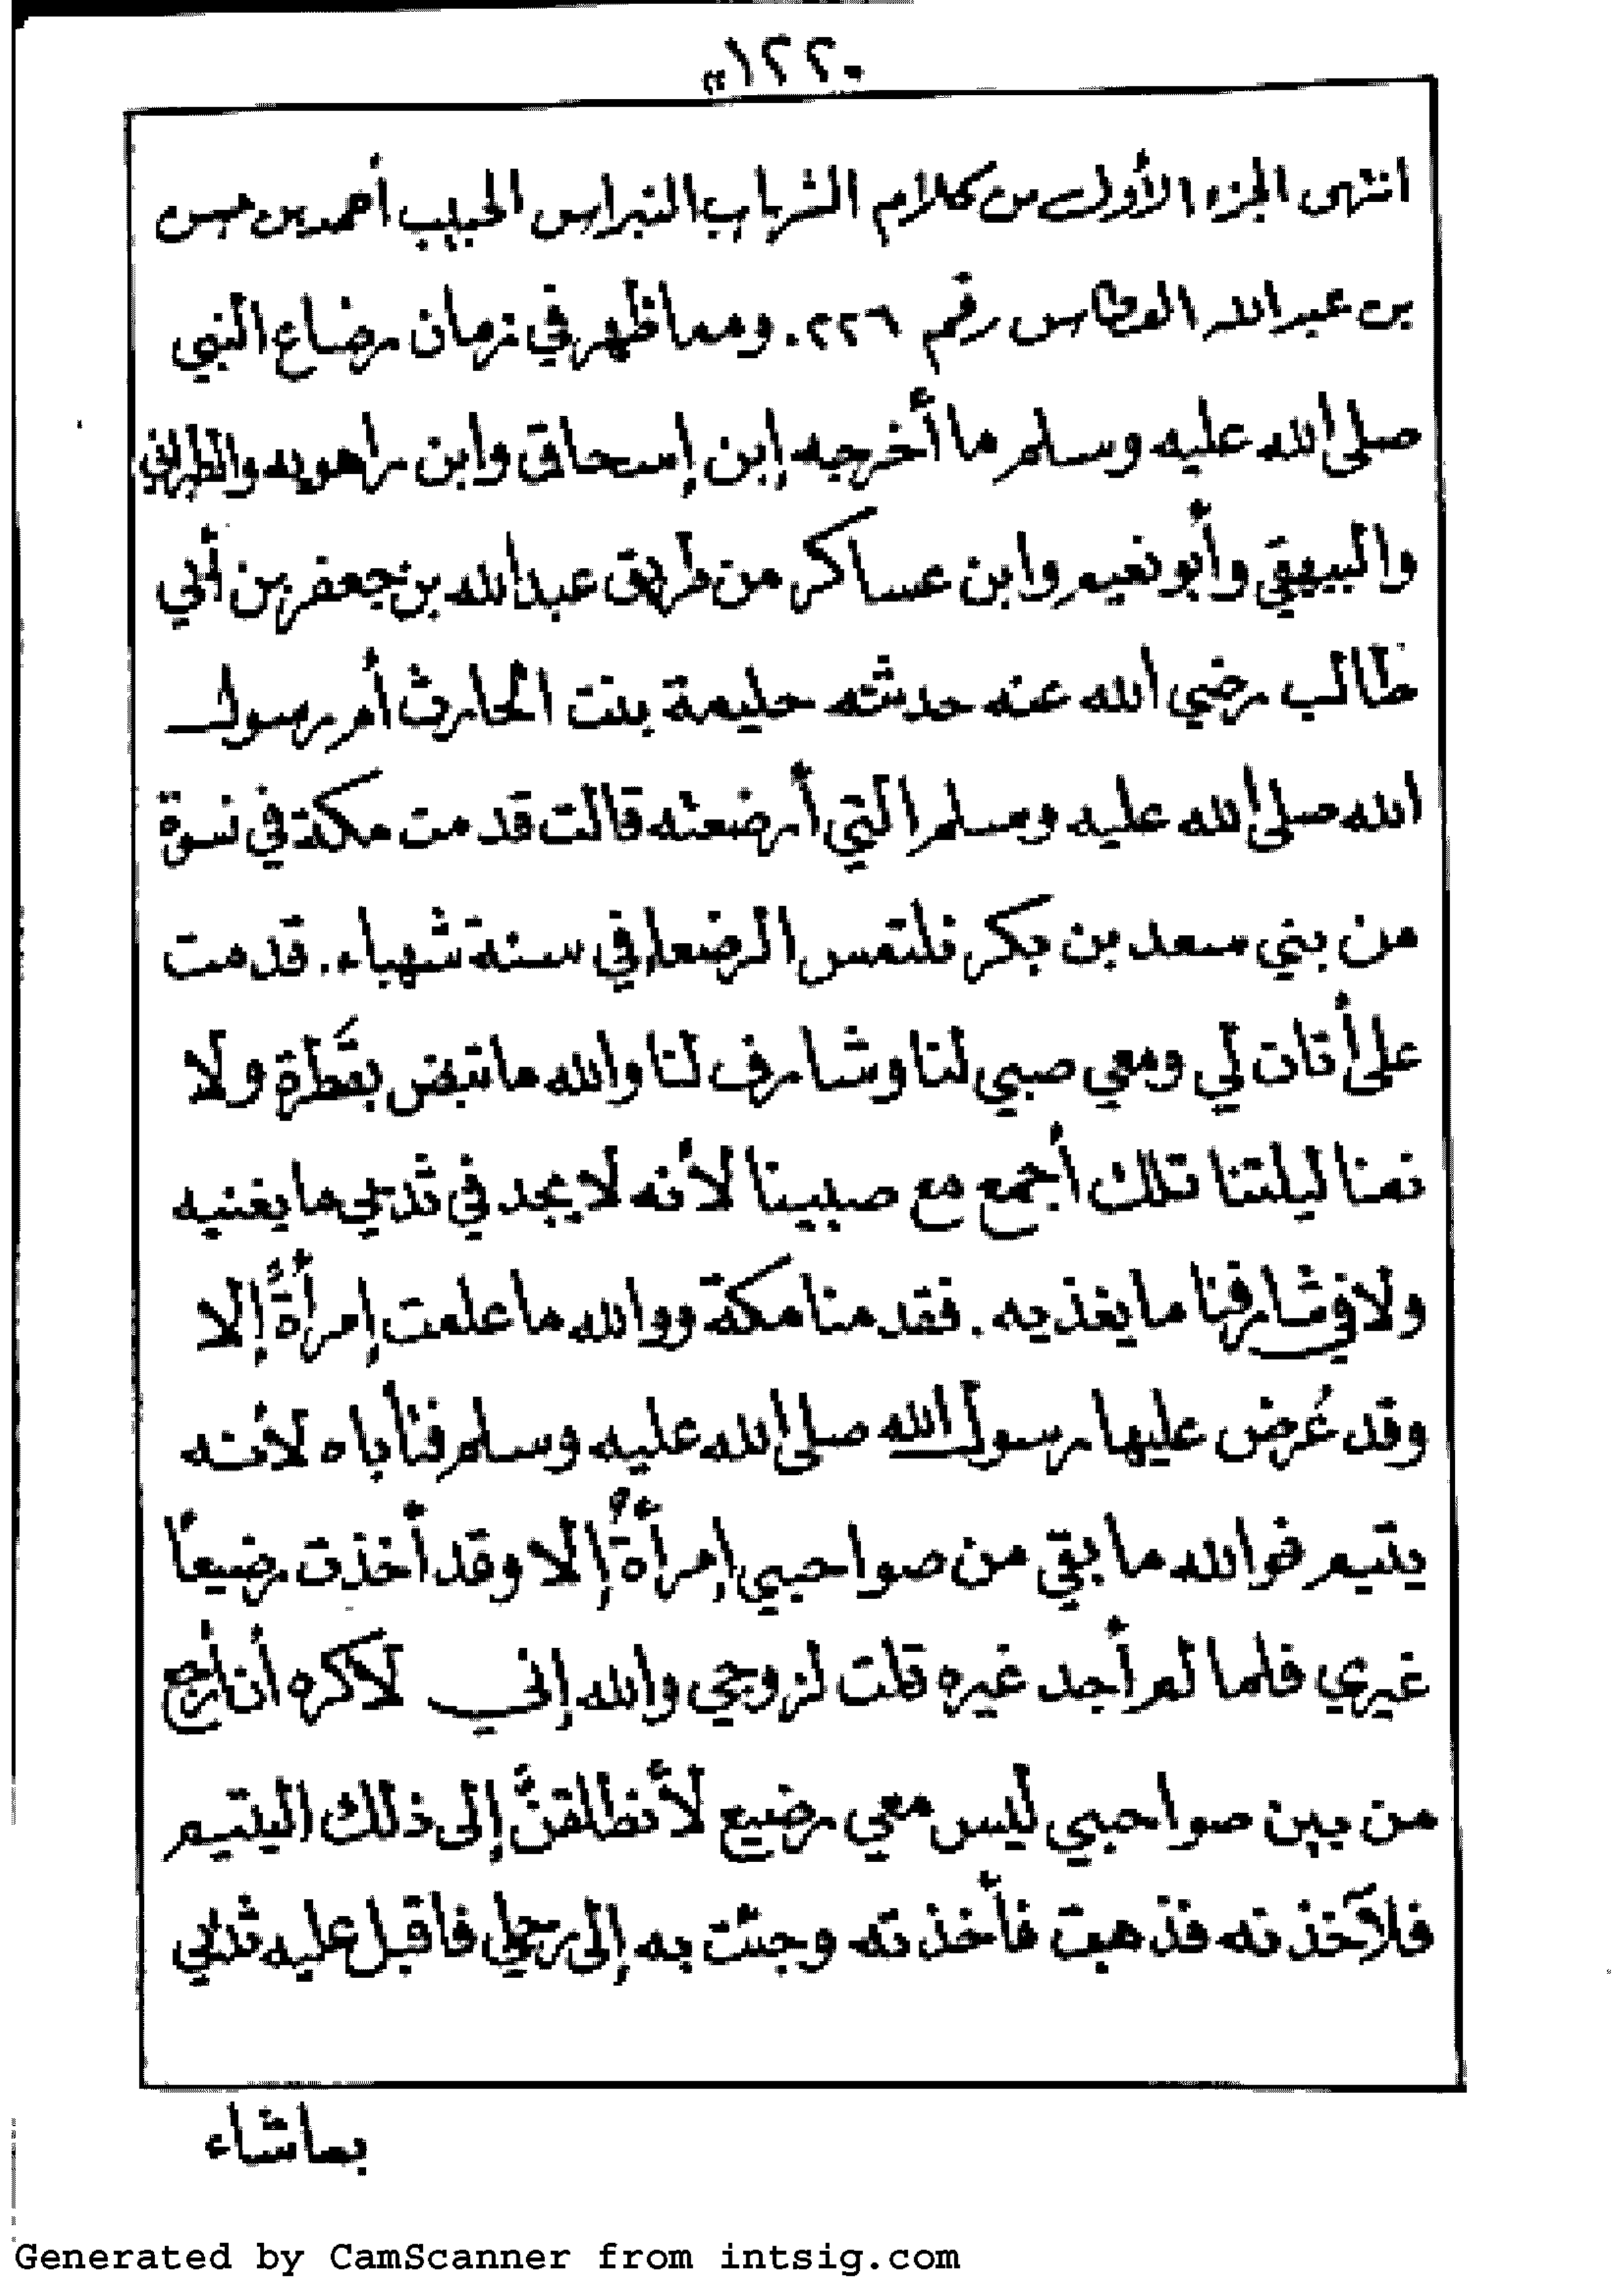 ١٢٢
انتهى الجزء الأول من كلام الشهاب النبراس الحبيب أحمد بن حسن
بن عبدالله العطاس رقم ٢٢٦. ومما ظهر في زمان رضاع النبي
صلى الله عليه وسلم ما أخرجه إبن إسحاق وابن راهويه والطبراني
والبيهقي وأبو نعيم وابن عساكر من طريق عبدالله بن جعفر بن أبي
طالب رضي الله عنه حدثته حليمة بنت الحارث أم رسول
الله صلى الله عليه وسلم التي أرضعته قالت قدمت مكة في نسوة
من بني سعد بن بكر نلتمس الرضعاء في سنة شهباء. قدمت
على أتان لي ومعي صبي لنا وشارف لنا والله ما تبض بقَطرة ولا
نمنا ليلتنا تلك أجمع مع صبينا لأنه لا يجد في ثديي ما يغنيه
ولا في شارفنا ما يغذيه. فقدمنا مكة ووالله ما علمت إمرأةً إلا
وقد عُرض عليها رسول الله صلى الله عليه وسلم فتأباه لأنه
يتيم فوالله ما بقي من صواحبي إمرأةٌ إلا وقد أخذت رضيعًا
غيري فلما لم أجد غيره قلت لزوجي والله إني لأكره أن أرجع
من بين صواحبي ليس معي رضيع لأنطلقنَّ إلى ذلك اليتيم
فلآخذنه فذهبت فأخذته وجئت به إلى رحلي فاقبل عليه ثديي
بماشاء
Generated by CamScanner from intsig.com